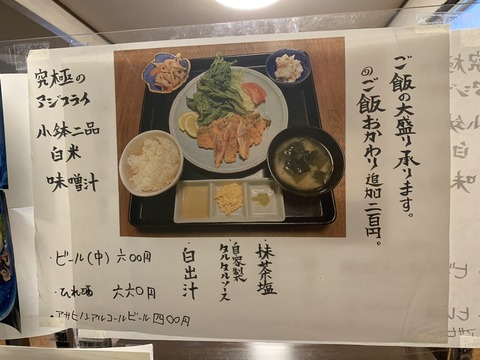 ご飯の大盛り承ります。
のご飯おかわり追加二百円。
究極の
アジフライ
小鉢二品
白米
味噌汁
・抹茶塩
・自家製
タルタルソース
・白出汁
・ビール(中) 六00円
・ひれ酒 六六0円
・アサヒノンアルコールビール 四00円